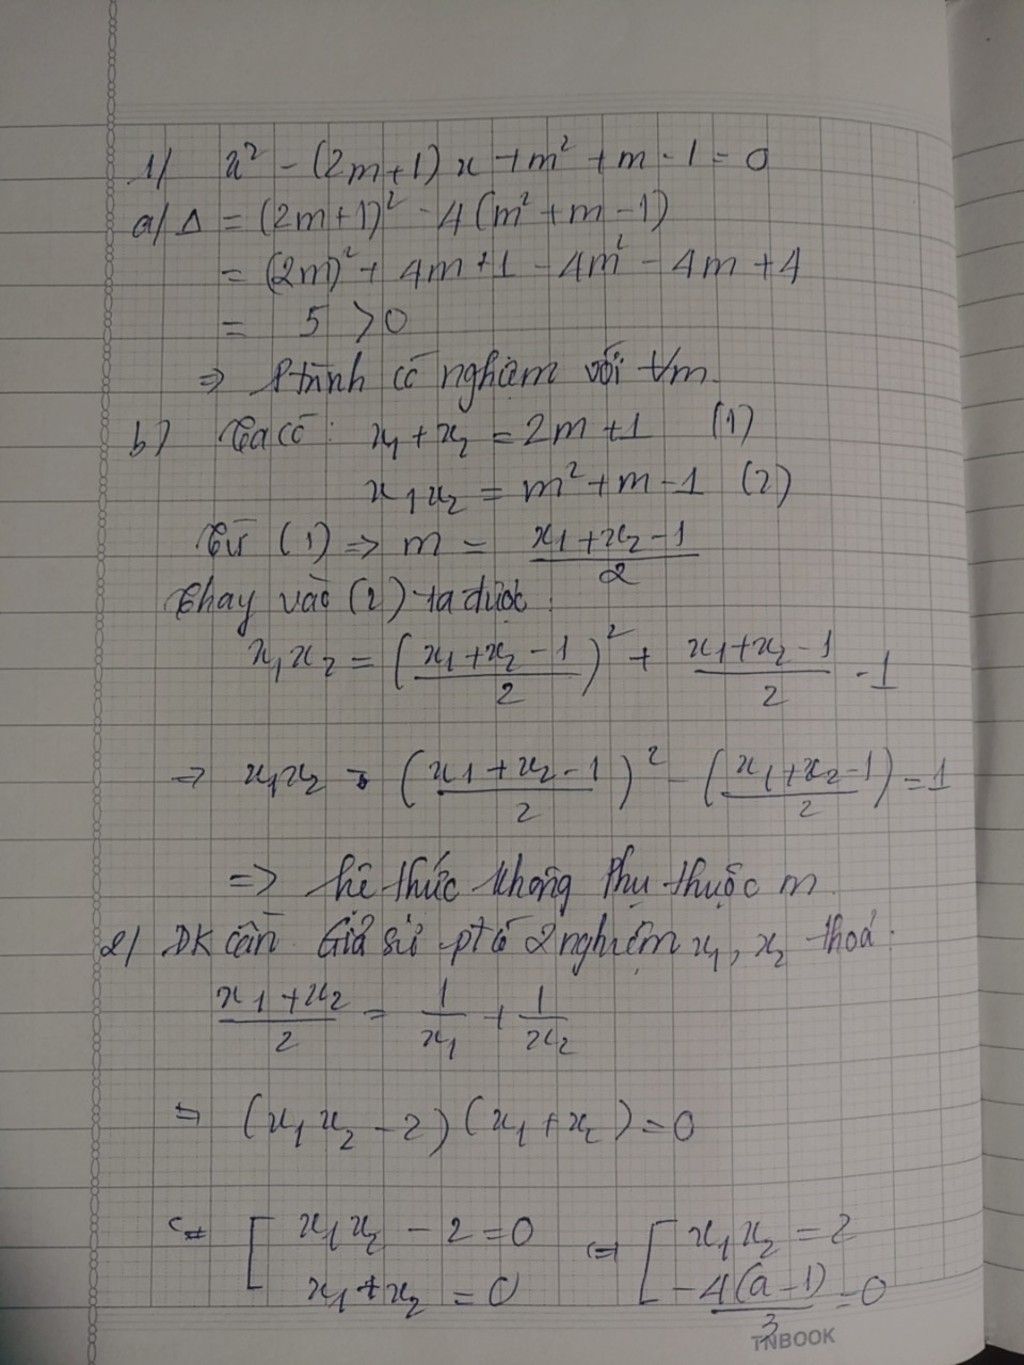 1/ x² - (2m+1)x + m² + m - 1 = 0
a/ Δ = (2m+1)² - 4(m² + m - 1)
= (2m)² + 4m + 1 - 4m² - 4m + 4
= 5 > 0
⇒ Ptrình có nghiệm với ∀m.
b) Ta có: x₁ + x₂ = 2m + 1 (1)
x₁x₂ = m² + m - 1 (2)
Từ (1) ⇒ m = (x₁ + x₂ - 1)/2
Thay vào (2) ta được:
x₁x₂ = ((x₁ + x₂ - 1)/2)² + (x₁ + x₂ - 1)/2 - 1
⇒ x₁x₂ - ((x₁ + x₂ - 1)/2)² - ((x₁ + x₂ - 1)/2) = 1
=> hệ thức không phụ thuộc m.
2/ ĐK cần Giả sử pt có 2 nghiệm x₁, x₂ thoả:
(x₁ + x₂)/2 = 1/x₁ + 1/x₂
⇔ (x₁x₂ - 2)(x₁ + x₂) = 0
⇔ [ x₁x₂ - 2 = 0 ⇔ [ x₁x₂ = 2
x₁ + x₂ = 0 -4(a-1)/3 = 0
TNBOOK